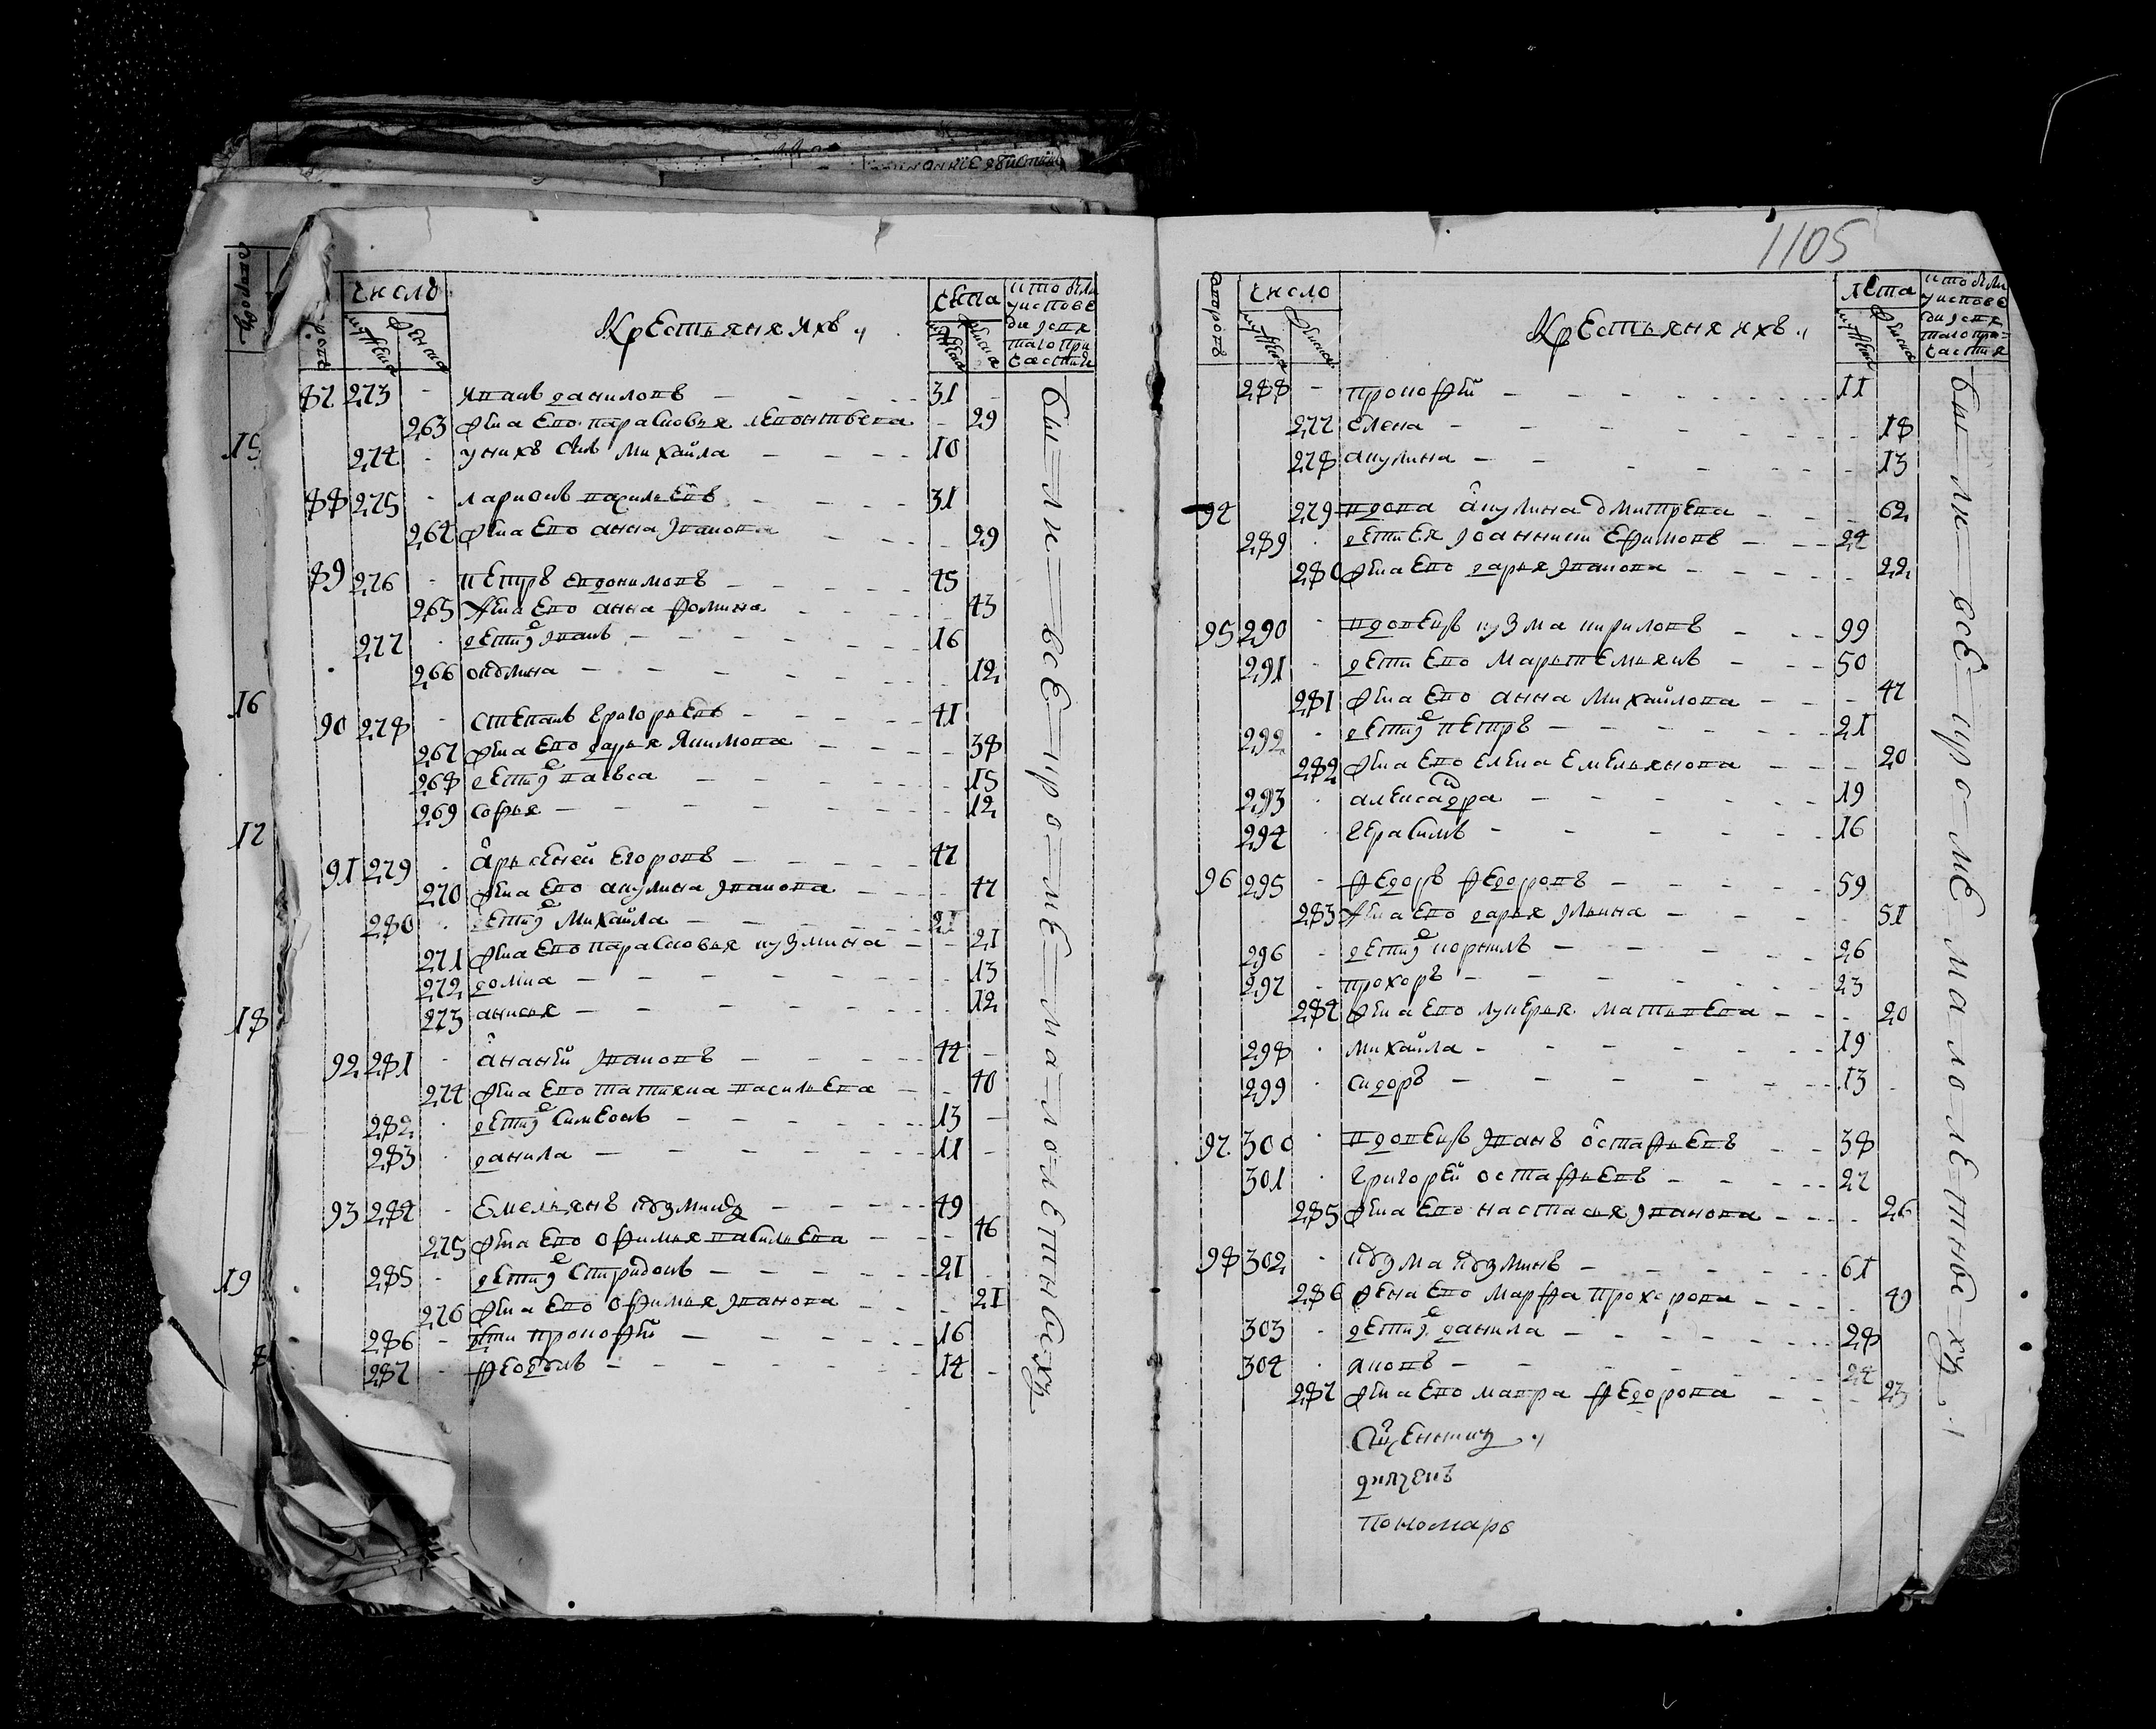 1105
число
Крестьяня ихъ
лета
кто были у исповеди и святаго причастия
87 273 Иванъ Даниловъ 31
263 жена ево Парасковья Леонтьева 29
274 у нихъ сынъ Михайла 10
88 275 Ларионъ Васильевъ 31
264 жена ево Анна Иванова 29
89 276 Петръ Евдокимовъ 45
265 жена ево Анна Фомина 43
277 дети их Иванъ 16
266 Окулина 12
90 278 Степанъ Григорьевъ 41
267 жена ево Дарья Якимова 38
268 дети их 15
269 Софья 12
91 279 Арьсеней Егоровъ 47
270 жена ево Акулина Иванова 47
280 дети их Михайла 21
271 жена ево Парасковья Кузмина 21
272 Домна 13
273 Анисья 12
92 281 Ананей Ивановъ 44
274 жена ево Татияна Васильева 40
282 дети их Симеонъ 13
283 Данила 11
93 284 Емельянъ Кузминъ 49
275 жена ево Офимья Васильева 46
285 дети их Спиридонъ 21
276 жена ево Офимья Иванова 21
286 дети Прокофей 16
287 14
15
16
17
18
19
были все кроме малолетныхъ
дворовъ
число
Крестьяня ихъ
лета
кто были у исповеди и святаго причастия
288 Прокофей 11
277 Елена 18
278 Акулина 13
94 279 вдова Акулина Дмитрева 62
289 дети ея Иоанникий Ефимовъ 24
280 жена ево Дарья Иванова 22
95 290 вдовецъ Кузма Кириловъ 99
291 дети ево Марьтемьянъ 50
281 жена ево Анна Михайлова 47
292 дети их Петръ 21
282 жена ево Елена Емельянова 20
293 Александра 19
294 Герасимъ 16
96 295 Федоръ Федоровъ 59
283 жена ево Дарья Ильина 51
296 дети их Корнилъ 26
297 Прохоръ 23
284 жена ево Лукерья Матьвева 20
298 Михайла 19
299 Сидоръ 13
97 300 вдовецъ Иванъ Остафьевъ 38
301 Григорей Остафьевъ 27
285 жена ево Настасья Иванова 26
98 302 Кузма Кузминъ 61
286 жена ево Марфа Прохорова 49
303 дети их Данила 28
304 Яковъ 24
287 жена ево Мавра Федорова 23
Священникъ
диячекъ
пономарь
были все кроме малолетныхъ